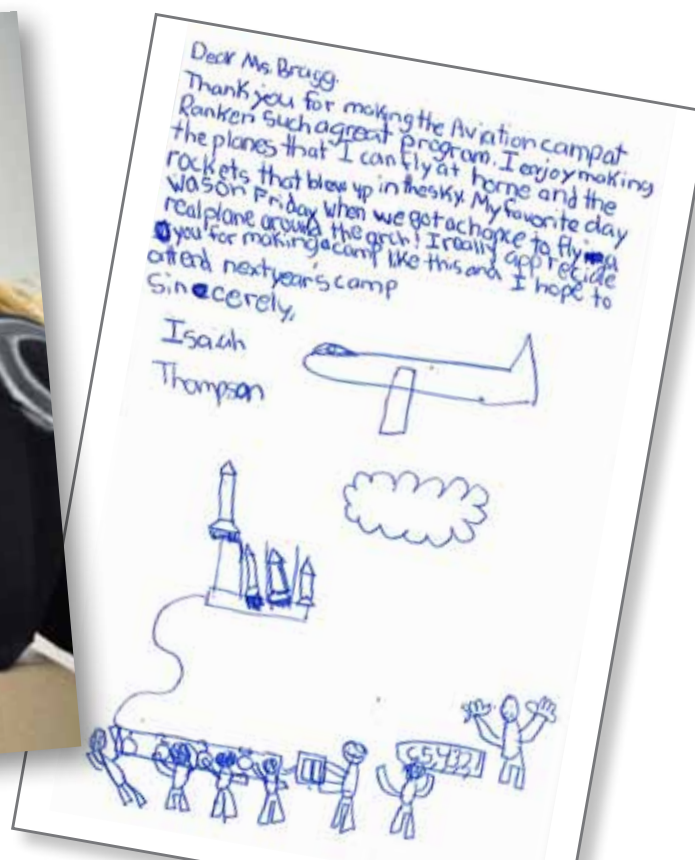 Dear Ms. Bragg.
Thank you for making the Aviation camp at
Ranken such a great program. I enjoy making
the planes that I can fly at home and the
rockets that blew up in the sky. My favorite day
was on Friday when we got a chance to fly a
real plane around the arch! I really apprecide
you for making a camp like this and I hope to
attend next year's camp
Sincerely,
Isaiah
Thompson